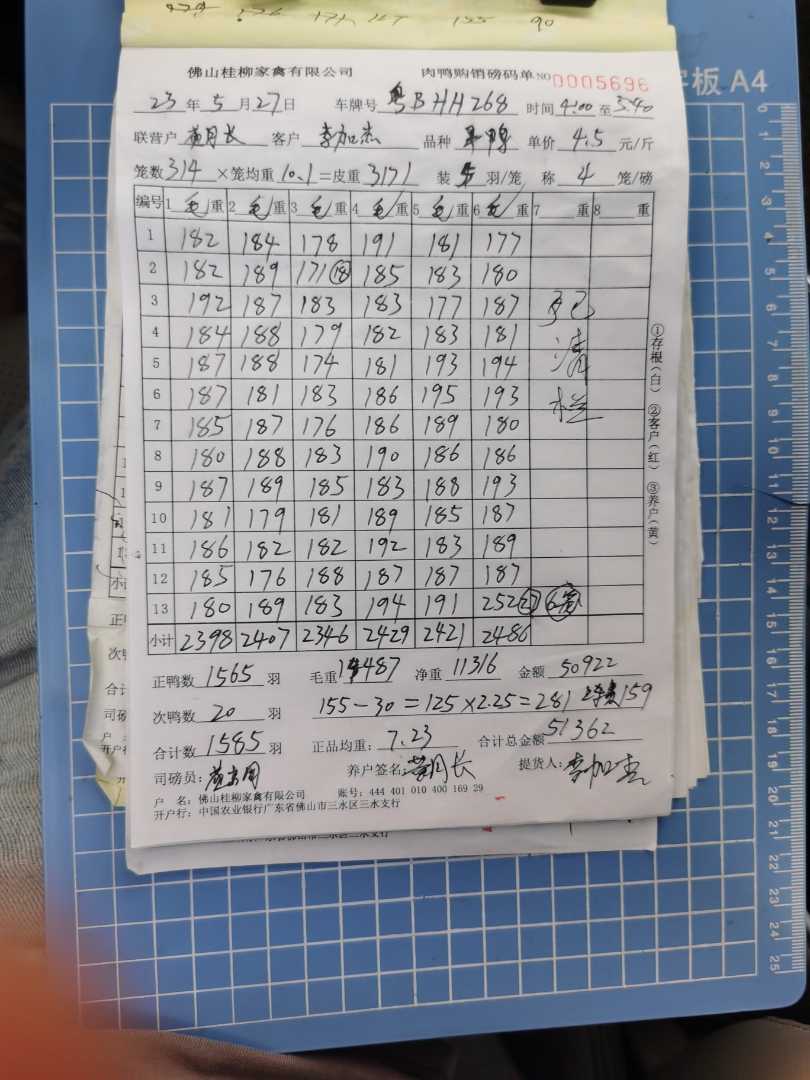 佛山桂柳家禽有限公司 肉鸭购销磅码单 NO 0005696
23年5月27日 车牌号 粤BHH268 时间 4:00 至 5:40
联营户 黄月长 客户 李加杰 品种 鸭 单价 4.5 元/斤
笼数 314 ×笼均重 10.1 =皮重 3171 装 5 羽/笼 称 4 笼/磅
编号 1 毛重 2 毛重 3 毛重 4 毛重 5 毛重 6 毛重 7 重 8 重
1 182 184 178 191 181 177
2 182 189 171 ⑱ 185 183 180
3 192 187 183 183 177 187 已
4 184 188 179 182 183 181 清
5 187 188 174 181 193 194 栏
6 187 181 183 186 195 193
7 185 187 176 186 189 180
8 180 188 183 190 186 186
9 187 189 185 183 188 193
10 181 179 181 189 185 187
11 186 182 182 192 183 189
12 185 176 188 187 187 187
13 180 189 183 194 191 252 6笼
小计 2398 2407 2346 2429 2421 2486
①存根(白) ②客户(红) ③养户(黄)
正鸭数 1565 羽 毛重 14487 净重 11316 金额 50922
次鸭数 20 羽 155-30=125×2.25=281 159
合计数 1585 羽 正品均重: 7.23 合计总金额 51362
司磅员: 养户签名: 黄月长 提货人: 李加杰
户 名: 佛山桂柳家禽有限公司 账号: 444 401 010 400 169 29
开户行: 中国农业银行广东省佛山市三水区三水支行
板 A4
0 1 2 3 4 5 6 7 8 9 10 11 12 13 14 15 16 17 18 19 20 21 22 23 24 25